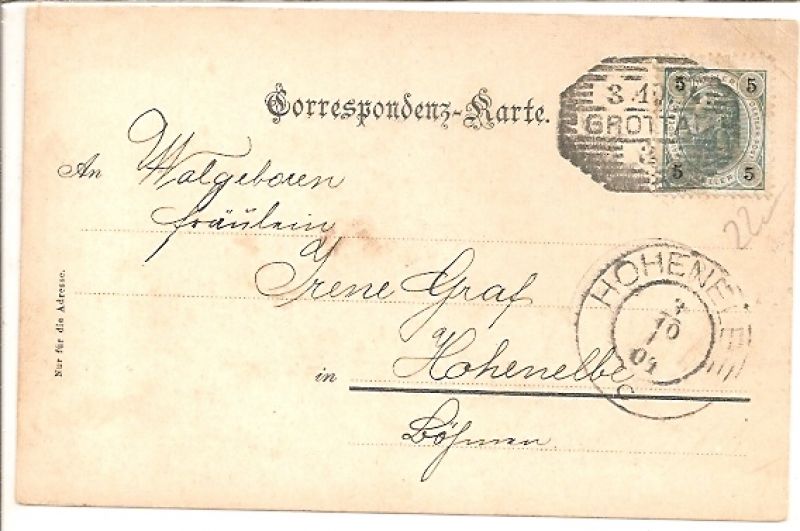 Correspondenz-Karte.
3 10
GROTTAU
5 5
5 5
An Wolgeboren
Fräulein
Irene Graf
in Hohenelbe
Böhmen
Nur für die Adresse.
HOHENELBE
3
10
04
22